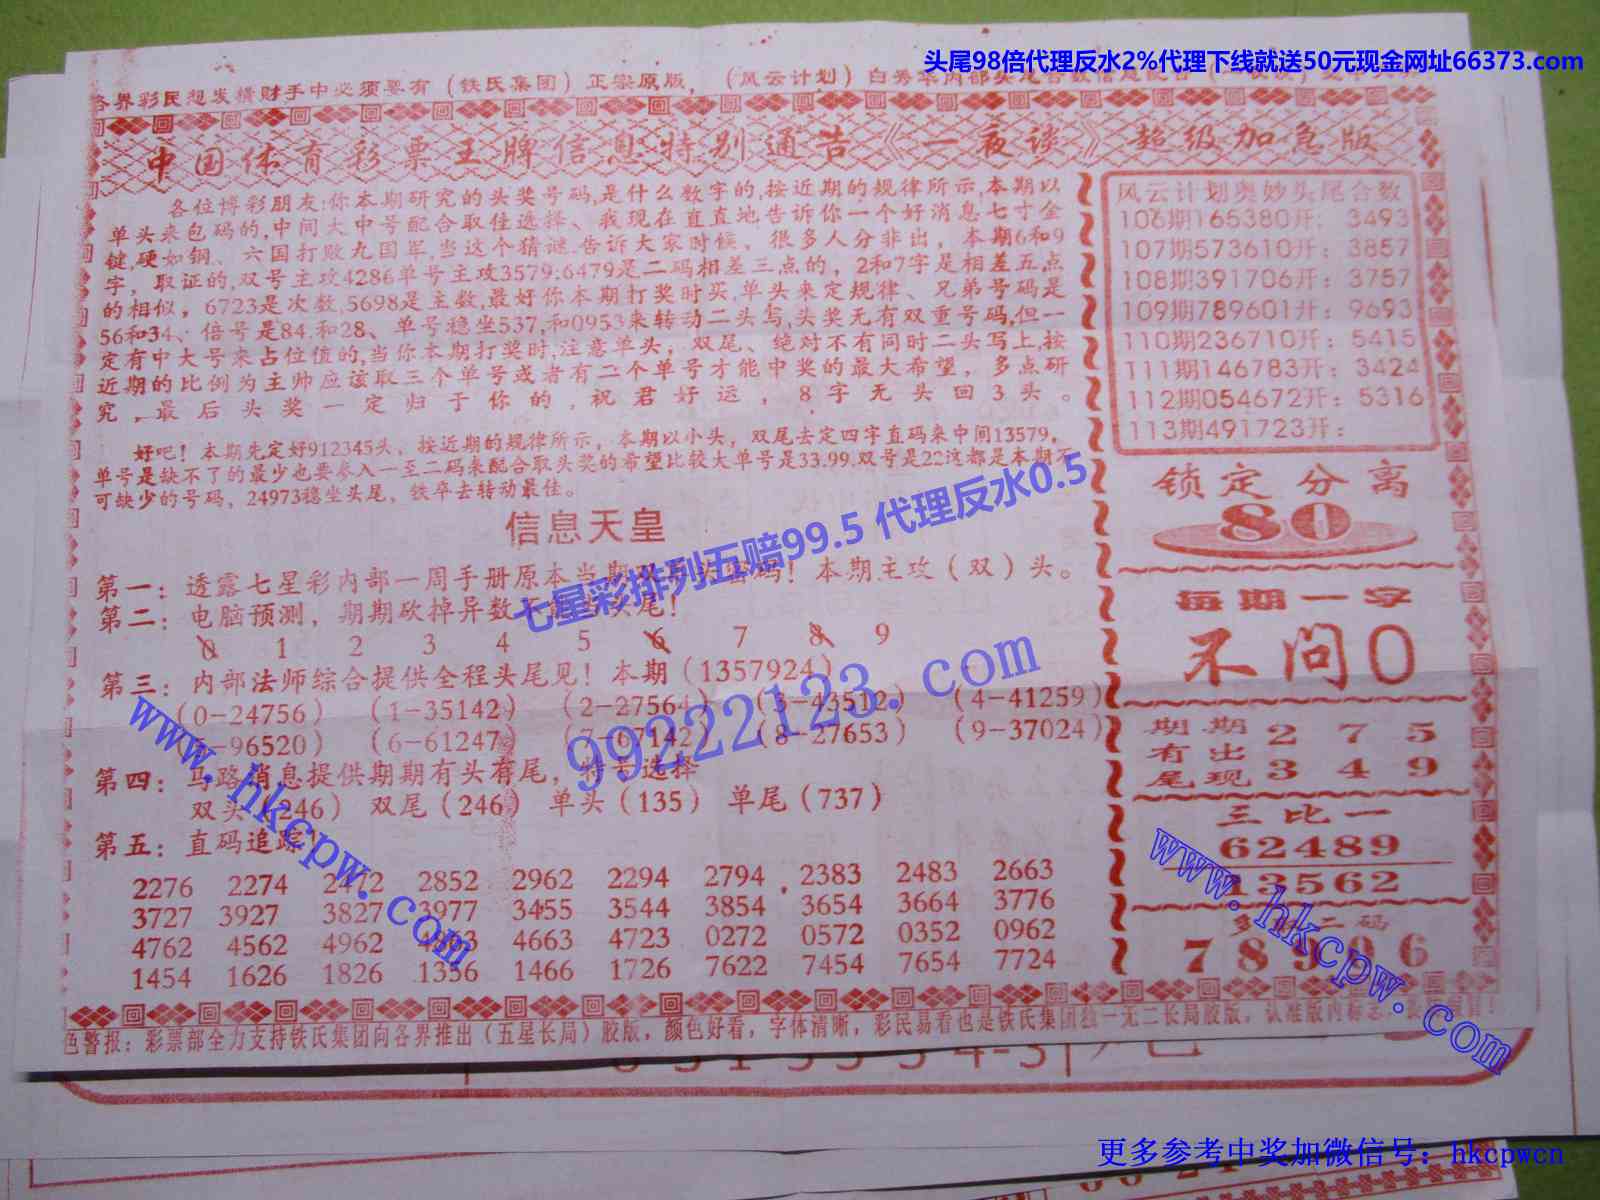 头尾98倍代理反水2%代理下线就送50元现金网址66373.com
各界彩民想发横财手中必须要有(铁氏集团)正宗原版,(风云计划)白
中国体育彩票王牌信息特别通告《一夜谈》超级加急版
各位博彩朋友:你本期研究的头奖号码,是什么数字的,按近期的规律所示,本期以
单头来包码的,中间大中号配合取佳选择、我现在直直地告诉你一个好消息七寸金
键,硬如钢、六国打败九国军,当这个猜谜,告诉大家时候,很多人分非出,本期6和9
字,取证的,双号主攻4286单号主攻3579;6479是二码相差三点的,2和7字是相差五点
的相似,6723是次数,5698是主数,最好你本期打奖时买,单头来定规律、兄弟号码是
56和34、倍号是84.和28、单号稳坐537,和0953来转动二头写,头奖无有双重号码,但一
定有中大号来占位值的,当你本期打奖时,注意单头,双尾、绝对不有同时二头写上,按
近期的比例为主帅应该取三个单号或者有二个单号才能中奖的最大希望,多点研
究,最后头奖一定归于你的,祝君好运,8字无头回3头。
好吧!本期先定好912345头,按近期的规律所示,本期以小头,双尾去定四字直码来中间13579,
单号是缺不了的最少也要参入一至二码来配合取头奖的希望比较大单号是33.99.双号是22这都是本期不
可缺少的号码,24973稳坐头尾,铁卒去转动最佳。
信息天皇
七星彩排列五赔99.5 代理反水0.5
第一:透露七星彩内部一周手册原本当期 !本期主攻(双)头。
第二:电脑预测,期期砍掉异数 头尾!
0 1 2 3 4 5 6 7 8 9
第三:内部法师综合提供全程头尾见!本期(1357924)
(0-24756) (1-35142) (2-27564) (3-43512) (4-41259)
-96520) (6-61247) (7-67142) (8-27653) (9-37024)
第四:马路消息提供期期有头有尾,特长选择
双头(246) 双尾(246) 单头(135) 单尾(737)
第五:直码追踪!
2276 2274 2472 2852 2962 2294 2794 2383 2483 2663
3727 3927 3827 3977 3455 3544 3854 3654 3664 3776
4762 4562 4962 4663 4723 0272 0572 0352 0962
1454 1626 1826 1356 1466 1726 7622 7454 7654 7724
99222123.com
www.hkcpw.com
风云计划奥妙头尾合数
106期165380开:3493
107期573610开:3857
108期391706开:3757
109期789601开:9693
110期236710开:5415
111期146783开:3424
112期054672开:5316
113期491723开:
锁定分离
80
每期一字
不问0
期期 2 7 5
有出
尾现 3 4 9
三比一
62489
13562
二码
www.hkcpw.com
色警报:彩票部全力支持铁氏集团向各界推出(五星长局)胶版,颜色好看,字体清晰,彩民易看也是铁氏集团独一无二长局胶版,认准版内标志
更多参考中奖加微信号:hkcpwcn